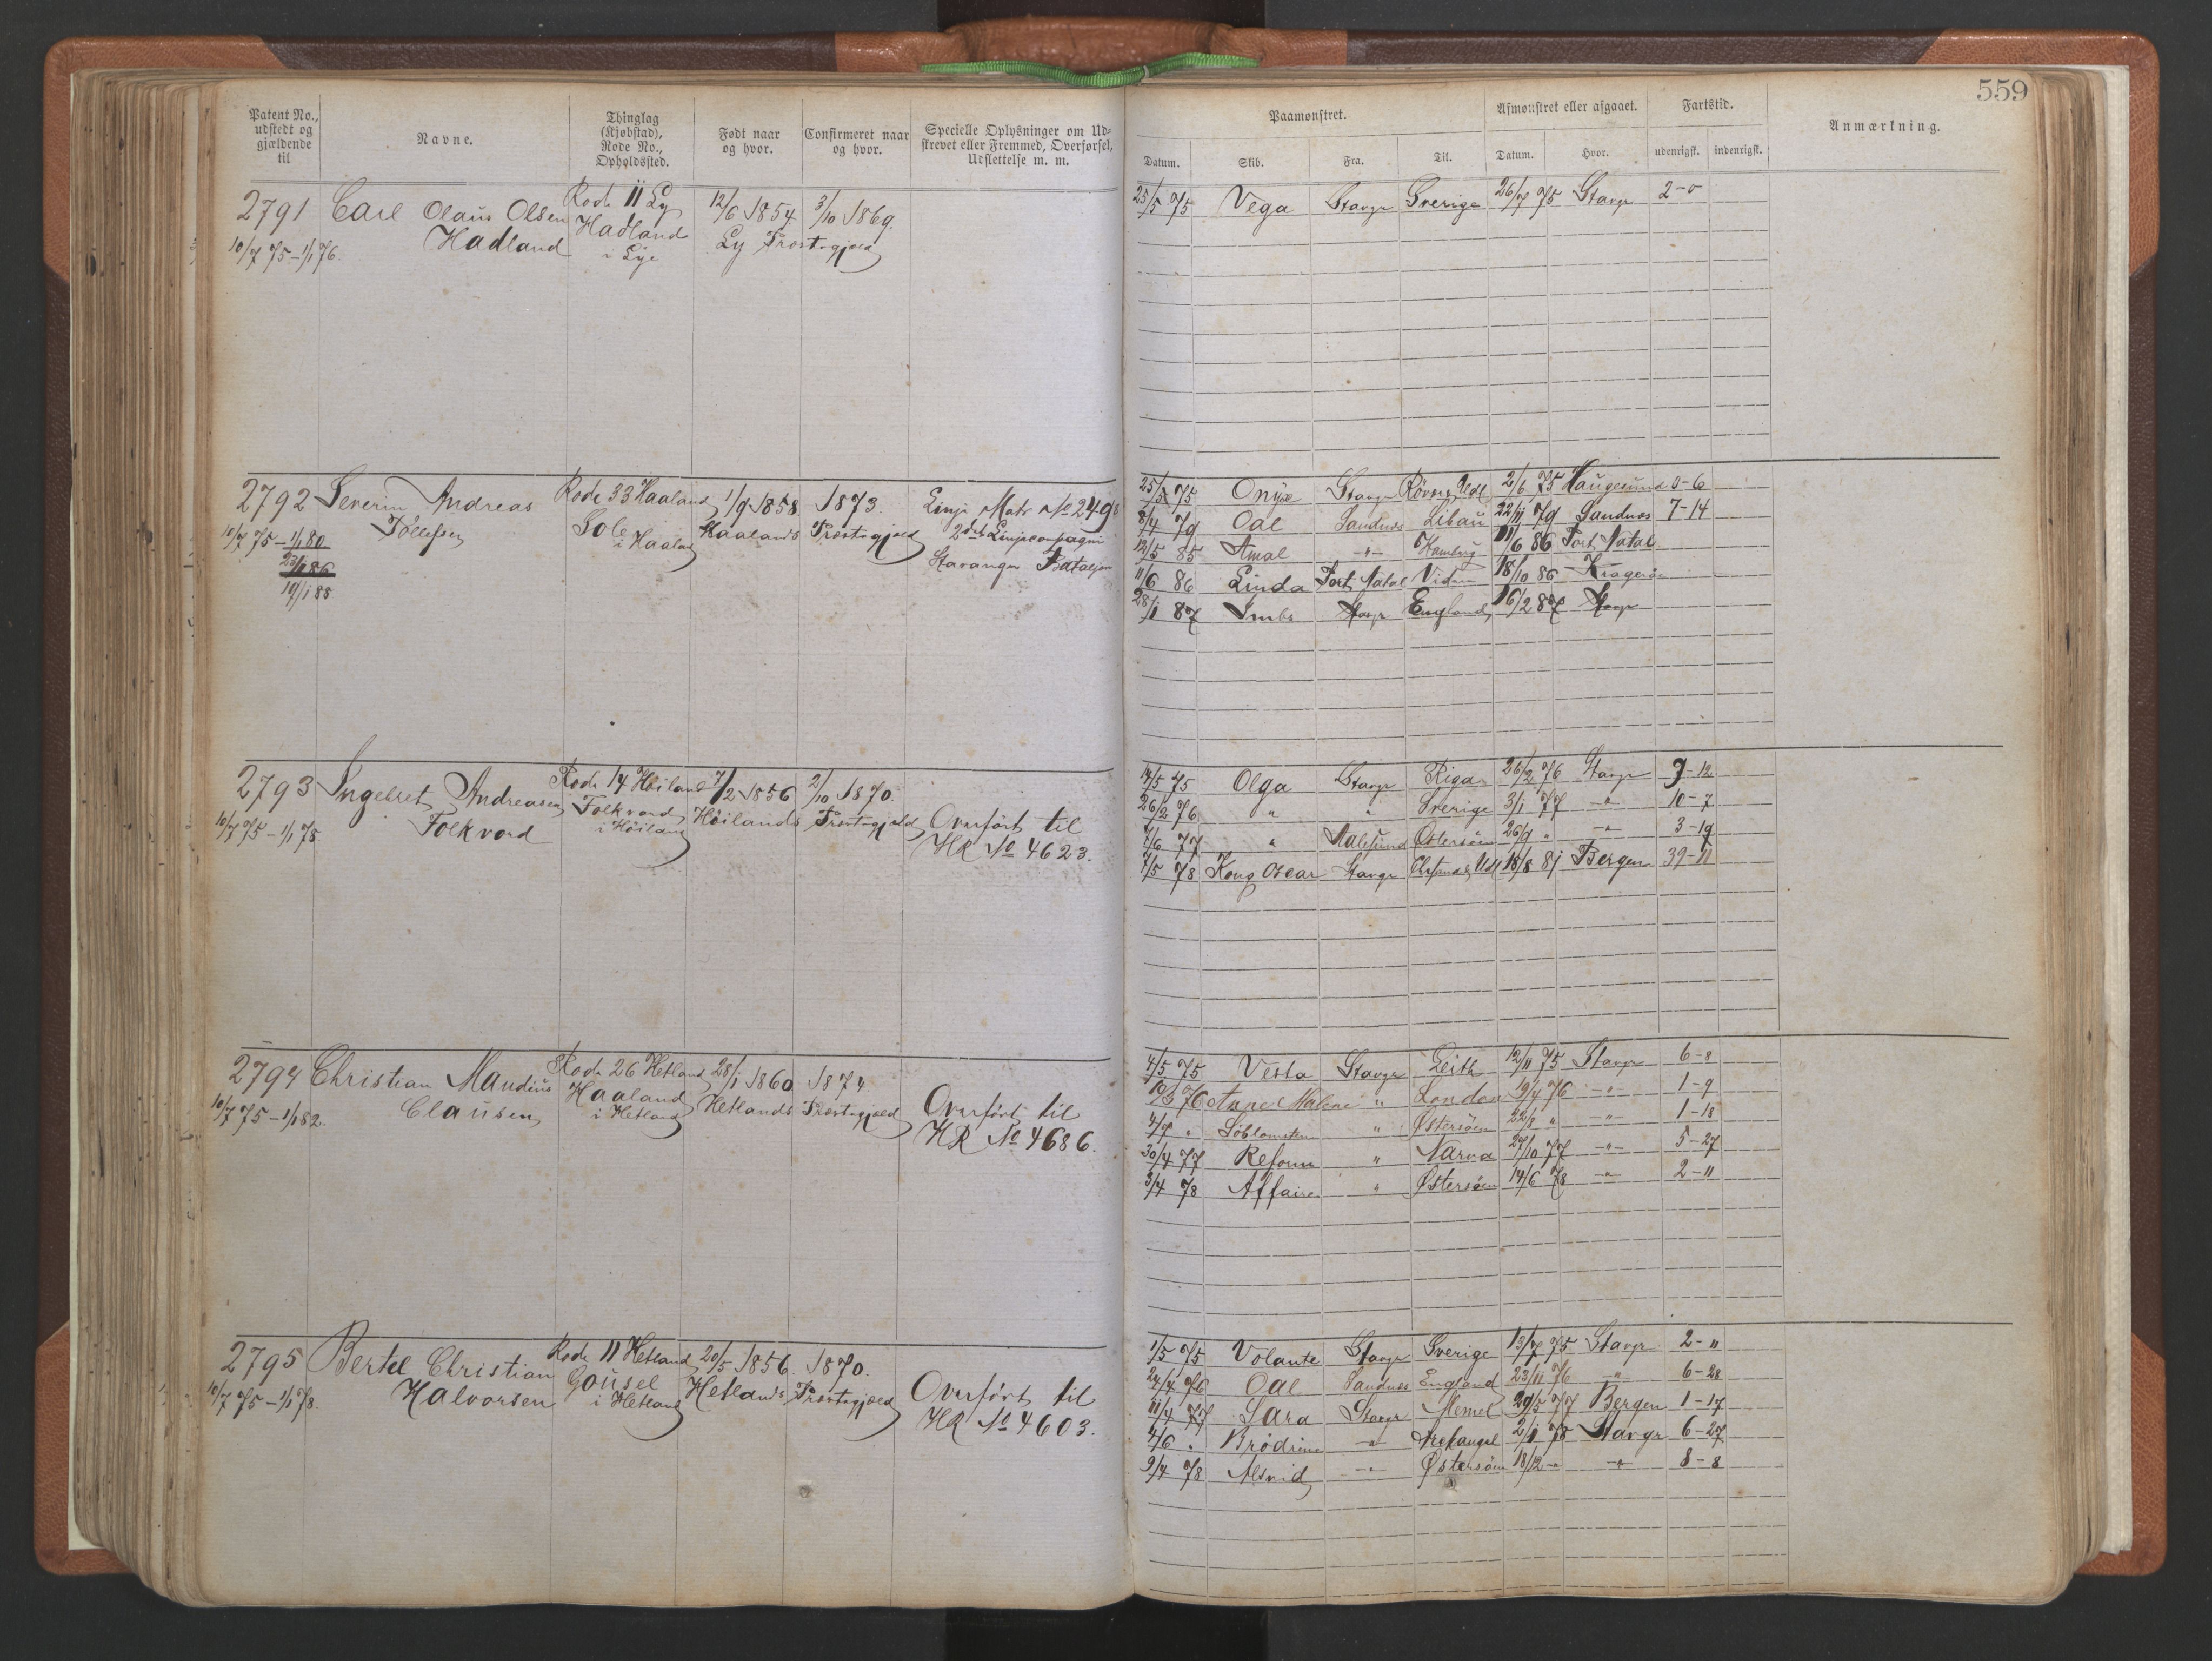 559
Patent No., udstedt og gjældende til
Navne.
Thinglag (Kjøbstad), Rode No., Opholdssted.
Født naar og hvor.
Confirmeret naar og hvor.
Specielle Oplysninger om Udskrevet eller Fremmed, Overførsel, Udslettelse m. m.
Paamønstret.
Afmønstret eller afgaaet.
Fartstid.
Anmærkning.
Datum. Skib. Fra. Til. Datum. Hvor. udenrigsk. indenrigsk.
2791 Carl Olaus Olsen Rode 11 Ly 12/6 1854 3/10 1869.
Hadland Hadland Ly Præstegjæld
10/7 75 – 1/1 76. i Lye
25/5 75 Vega Stavgr Sverige 26/7 75 Stavgr 2-0
2792 Severin Andreas Rode 33 Haaland 1/9 1858. 1873. Linje Matr No 249
Tollefsen Sole Haalands Præstegjæld 2det Linjecompagni
10/7 75 – 1/1 80 i Haaland Stavanger Bataljon
23/1 86
19/1 88
25/5 75 Onyx Stavgr 2/6 75 Haugesund 0-6
8/4 79 Oal Sandnæs Libau 22/11 79 Sandnæs 7-14
12/5 85 Amal –"– Hamburg 11/6 86 Port Natal
11/6 86 Linda Port Natal 18/10 86 Kragerøe
28/1 87 Stavgr England 16/2 87 Stavgr
2793 Ingebret Andreasen Rode 14 Høiland 7/2 1856 2/10 1870.
Folkvord Folkvord Høilands Præstegjæld Overført til
10/7 75 – 1/1 78 i Høiland HR No 4623.
14/5 75 Olga Stavgr Riga 26/2 76 Stavgr 9-12
26/2 76 " " Sverige 3/1 77 –"– 10-7
7/6 77 " Aalesund Østersøen 26/9 " –"– 3-19
7/5 78 Kong Oscar Stavgr 18/8 81 Bergen 39-11
2794 Christian Maudius Rode 26 Hetland 28/1 1860 1874
Clausen Haaland Hetlands Præstegjæld Overført til
10/7 75 – 1/1 82. i Hetland HR No 4686.
4/5 75 Vesta Stavgr Leith 12/11 75 Stavgr 6-8
10/3 76 Anne Malene " London 19/4 76 –"– 1-9
4/7 " Søblomsten " Østersøen 22/8 " –"– 1-18
30/4 77 Reform " Narva 27/10 77 –"– 5-27
3/4 78 Affaire " Østersøen 14/6 78 –"– 2-11
2795 Bertel Christian Rode 11 Hetland 20/5 1856. 1870.
Halvorsen Gousel Hetlands Præstegjæld Overført til
10/7 75 – 1/1 78. i Hetland HR No 4603.
1/5 75 Volante Stavgr Sverige 13/7 75 Stavgr 2-"
24/4 76 Oal Sandnæs England 23/11 76 –"– 6-28
11/4 77 Sara Stavgr Memel 29/5 77 Bergen 1-17
4/6 " Brødrene –"– Archangel 2/1 78 Stavgr 6-27
9/4 78 Astrid –"– Østersøen 18/12 –"– –"– 8-8